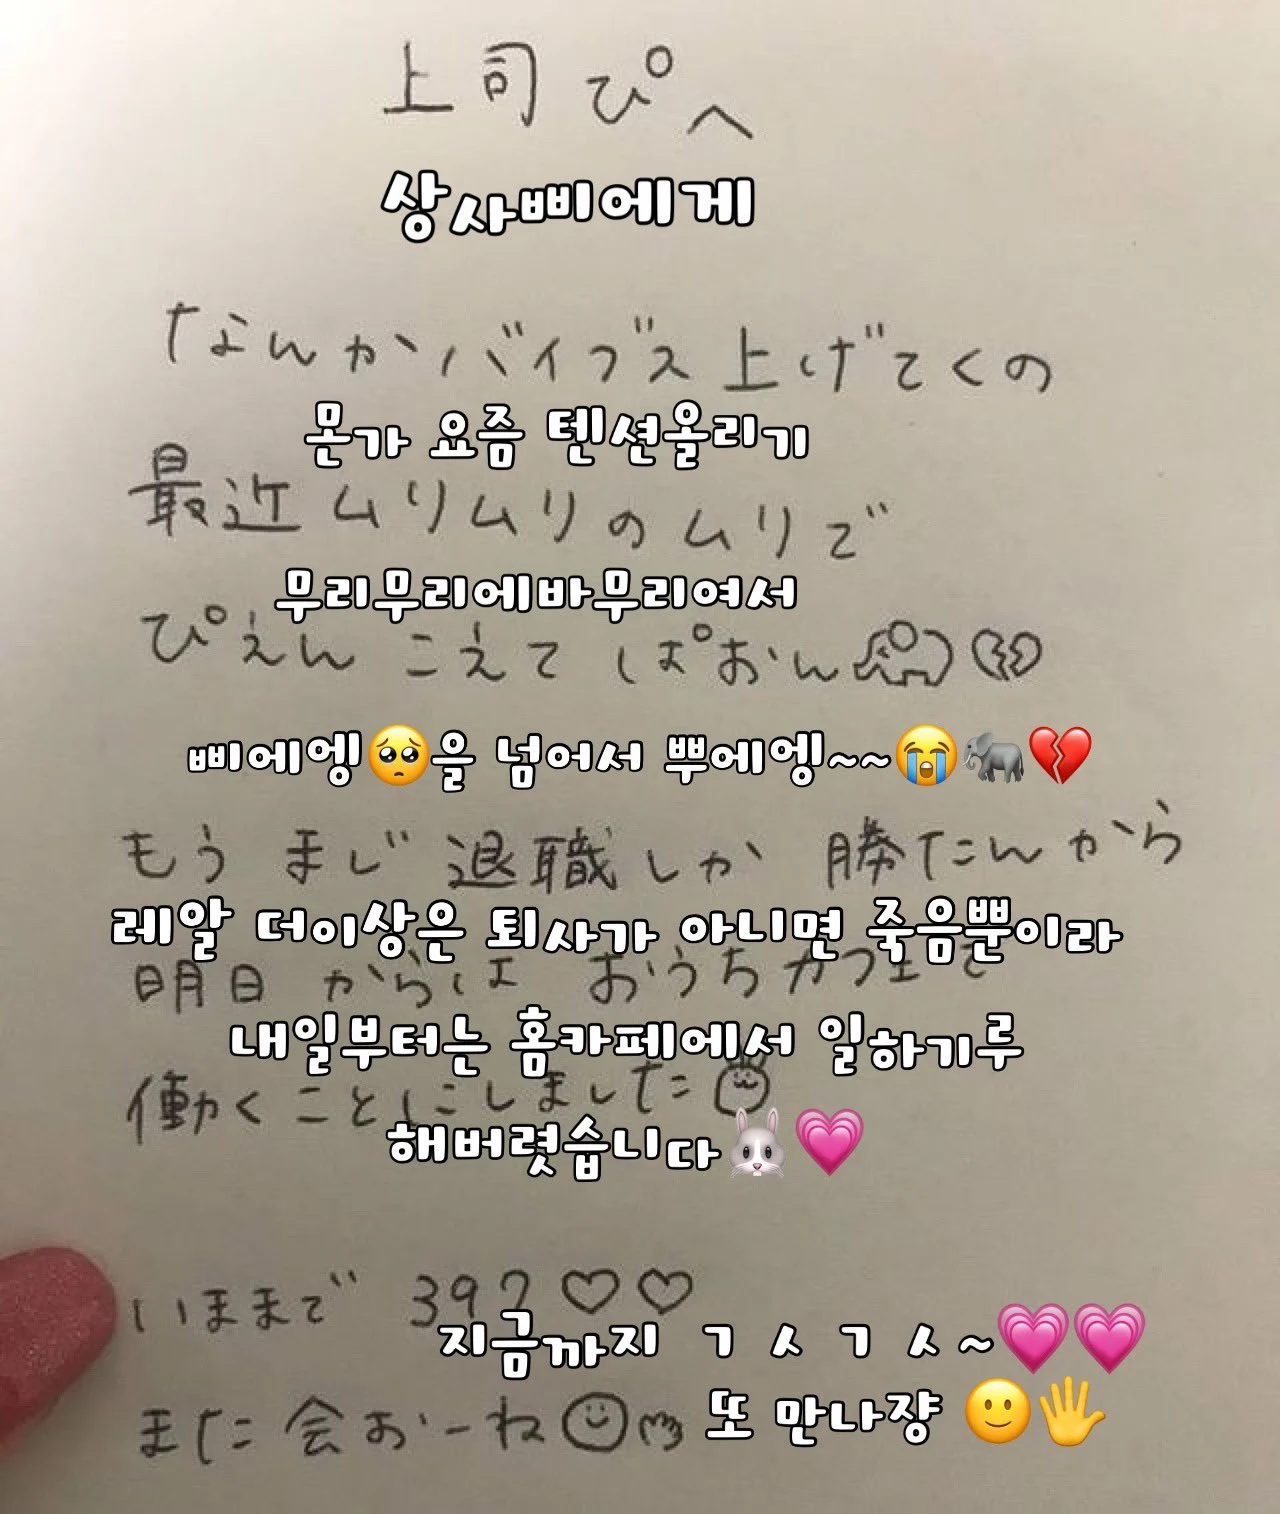 上司ぴへ
상사삐에게
なんかバイブス上げてくの
몬가 요즘 텐션올리기
最近ムリムリのムリで
무리무리에바무리여서
ぴえんこえてぱおん
삐에엥🥺을 넘어서 뿌에엥~~😭🐘💔
もうまじ退職しか勝たんから
레알 더이상은 퇴사가 아니면 죽음뿐이라
明日からはおうちカフェで
내일부터는 홈카페에서 일하기루
働くことにしました
해버렷습니다🐰💗
いままで 39?♡♡
지금까지 ㄱ ㅅ ㄱ ㅅ~💗💗
また会おーね
또 만나쟝 🙂🖐